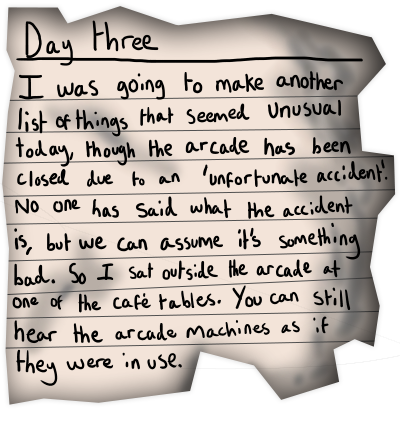 Day three
I was going to make another
list of things that seemed unusual
today, though the arcade has been
closed due to an 'unfortunate accident'.
No one has said what the accident
is, but we can assume it's something
bad. So I sat outside the arcade at
one of the café tables. You can still
hear the arcade machines as if
they were in use.